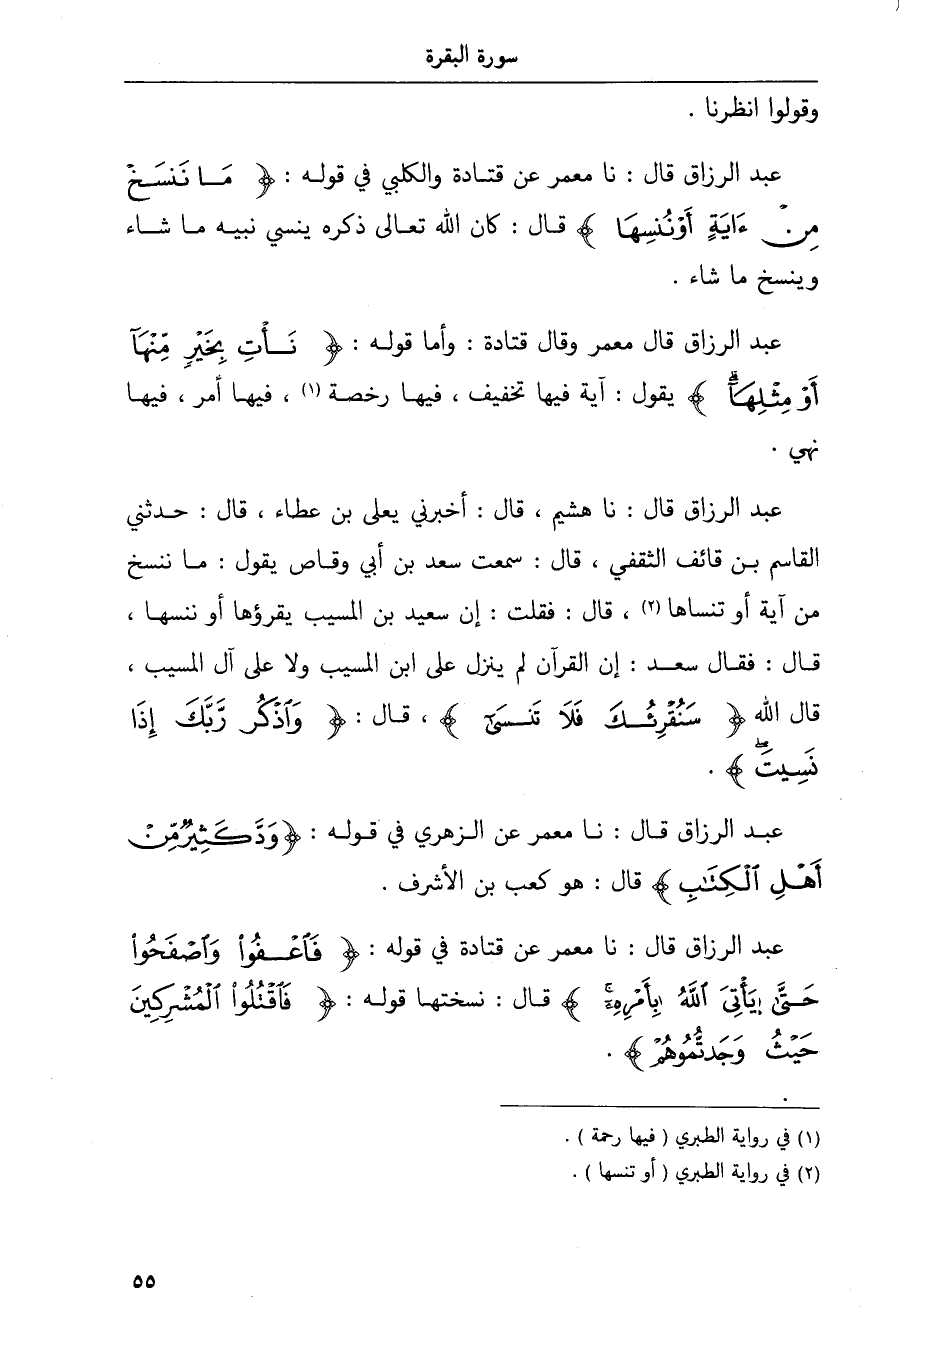 سورة البقرة
وقولوا انظرنا .
عبد الرزاق قال : نا معمر عن قتادة والكلبي في قوله : ﴿ مَا نَنسَخْ
مِنْ ءَايَةٍ أَوْنُنسِهَا ﴾ قال : كان الله تعالى ذكره ينسي نبيه ما شاء
وينسخ ما شاء .
عبد الرزاق قال معمر وقال قتادة : وأما قوله : ﴿ نَأْتِ بِخَيْرٍ مِّنْهَآ
أَوْ مِثْلِهَآ ﴾ يقول : آية فيها تخفيف ، فيها رخصة (١) ، فيها أمر ، فيها
نهي .
عبد الرزاق قال : نا هشيم ، قال : أخبرني يعلى بن عطاء ، قال : حدثني
القاسم بن قائف الثقفي ، قال : سمعت سعد بن أبي وقاص يقول : ما ننسخ
من آية أو تنساها (٢) ، قال : فقلت : إن سعيد بن المسيب يقرؤها أو ننسها ،
قال : فقال سعد : إن القرآن لم ينزل على ابن المسيب ولا على آل المسيب ،
قال الله ﴿ سَنُقْرِئُكَ فَلَا تَنسَىٰٓ ﴾ ، قال : ﴿ وَٱذْكُر رَّبَّكَ إِذَا
نَسِيتَ ۖ ﴾ .
عبد الرزاق قال : نا معمر عن الزهري في قوله : ﴿وَدَّ كَثِيرٌ مِّنْ
أَهْلِ ٱلْكِتَٰبِ ﴾ قال : هو كعب بن الأشرف .
عبد الرزاق قال : نا معمر عن قتادة في قوله : ﴿ فَٱعْفُوا۟ وَٱصْفَحُوا۟
حَتَّىٰ يَأْتِىَ ٱللَّهُ بِأَمْرِهِۦٓ ﴾ قال : نسختها قوله : ﴿ فَٱقْتُلُوا۟ ٱلْمُشْرِكِينَ
حَيْثُ وَجَدتُّمُوهُمْ ﴾ .
(١) في رواية الطبري ( فيها رحمة ) .
(٢) في رواية الطبري ( أو تنسها ) .
٥٥